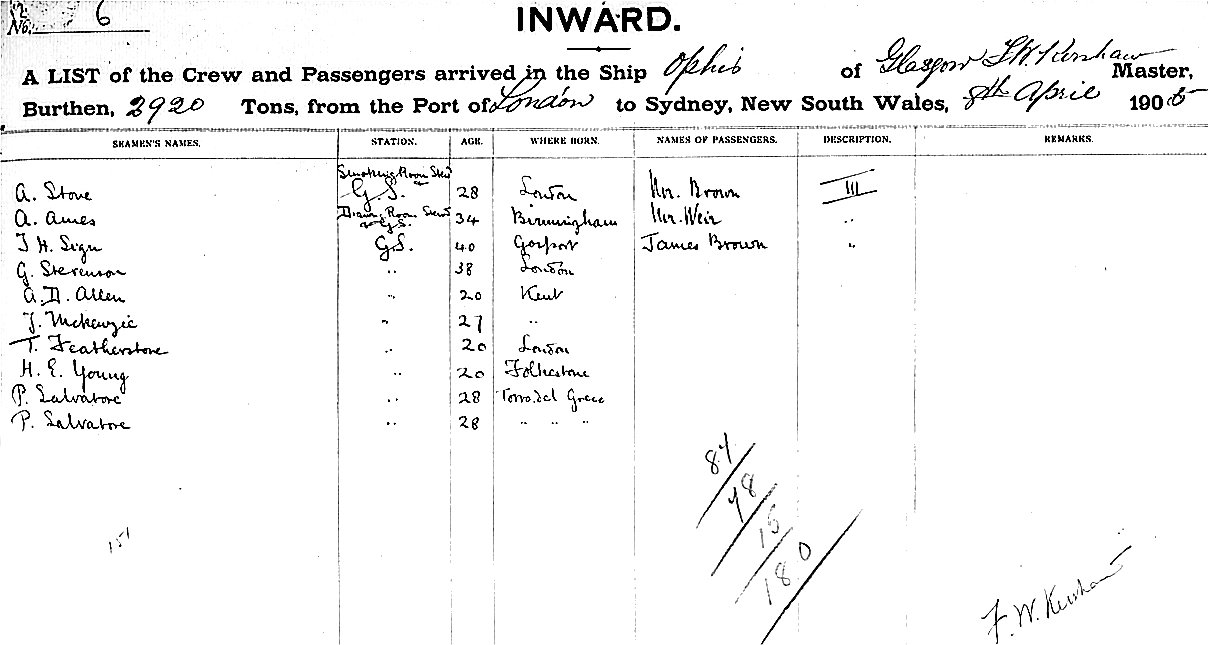 No. 6
INWARD.
A LIST of the Crew and Passengers arrived in the Ship Ophir of Glasgow F.W. Kershaw Master,
Burthen, 2920 Tons, from the Port of London to Sydney, New South Wales, 8th April 1905
SEAMEN'S NAMES. STATION. AGE. WHERE BORN. NAMES OF PASSENGERS. DESCRIPTION. REMARKS.
Smoking Room Stew
A. Stone G.S. 28 London Mr. Brown III
A. Ames 34 Birmingham Mr. Weir "
& G.S.
J H. Sign G.S. 40 Gosport James Brown "
G. Stevenson " 38 London
A. D. Allen " 20 Kent
J. McKenzie " 27 "
T. Featherstone " 20 London
H. E. Young " 20 Folkestone
P. Salvatore " 28 Torre del Greco
P. Salvatore " 28 " " "
87
78
15
180
151
F. W. Kershaw